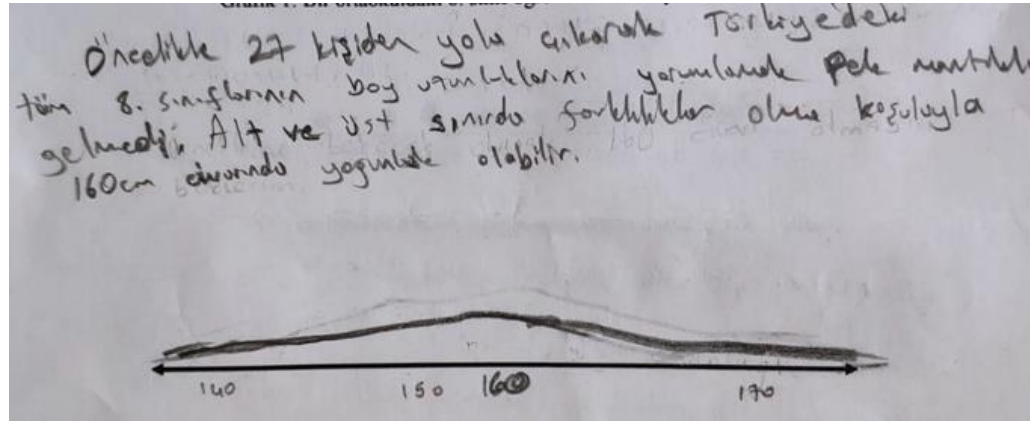 Öncelikle 27 kişiden yola çıkarak Türkiyedeki
tüm 8. sınıflarının boy uzunluklarını yorumlamak pek mantıklı
gelmedi, Alt ve üst sınırda farklılıklar olma koşuluyla
160cm civarında yoğunluk olabilir.
140 150 160 170